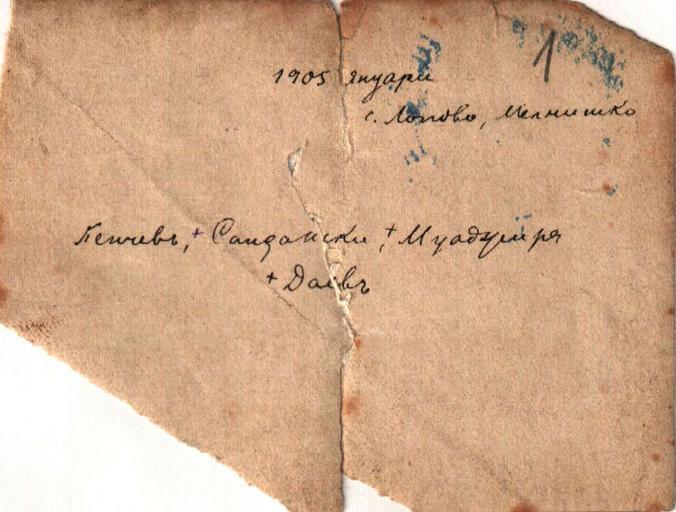 1
1905 Януари
с. Лопово, Мелнишко
Пенчевъ, + Сандански, + Муаджира
+ Даевъ